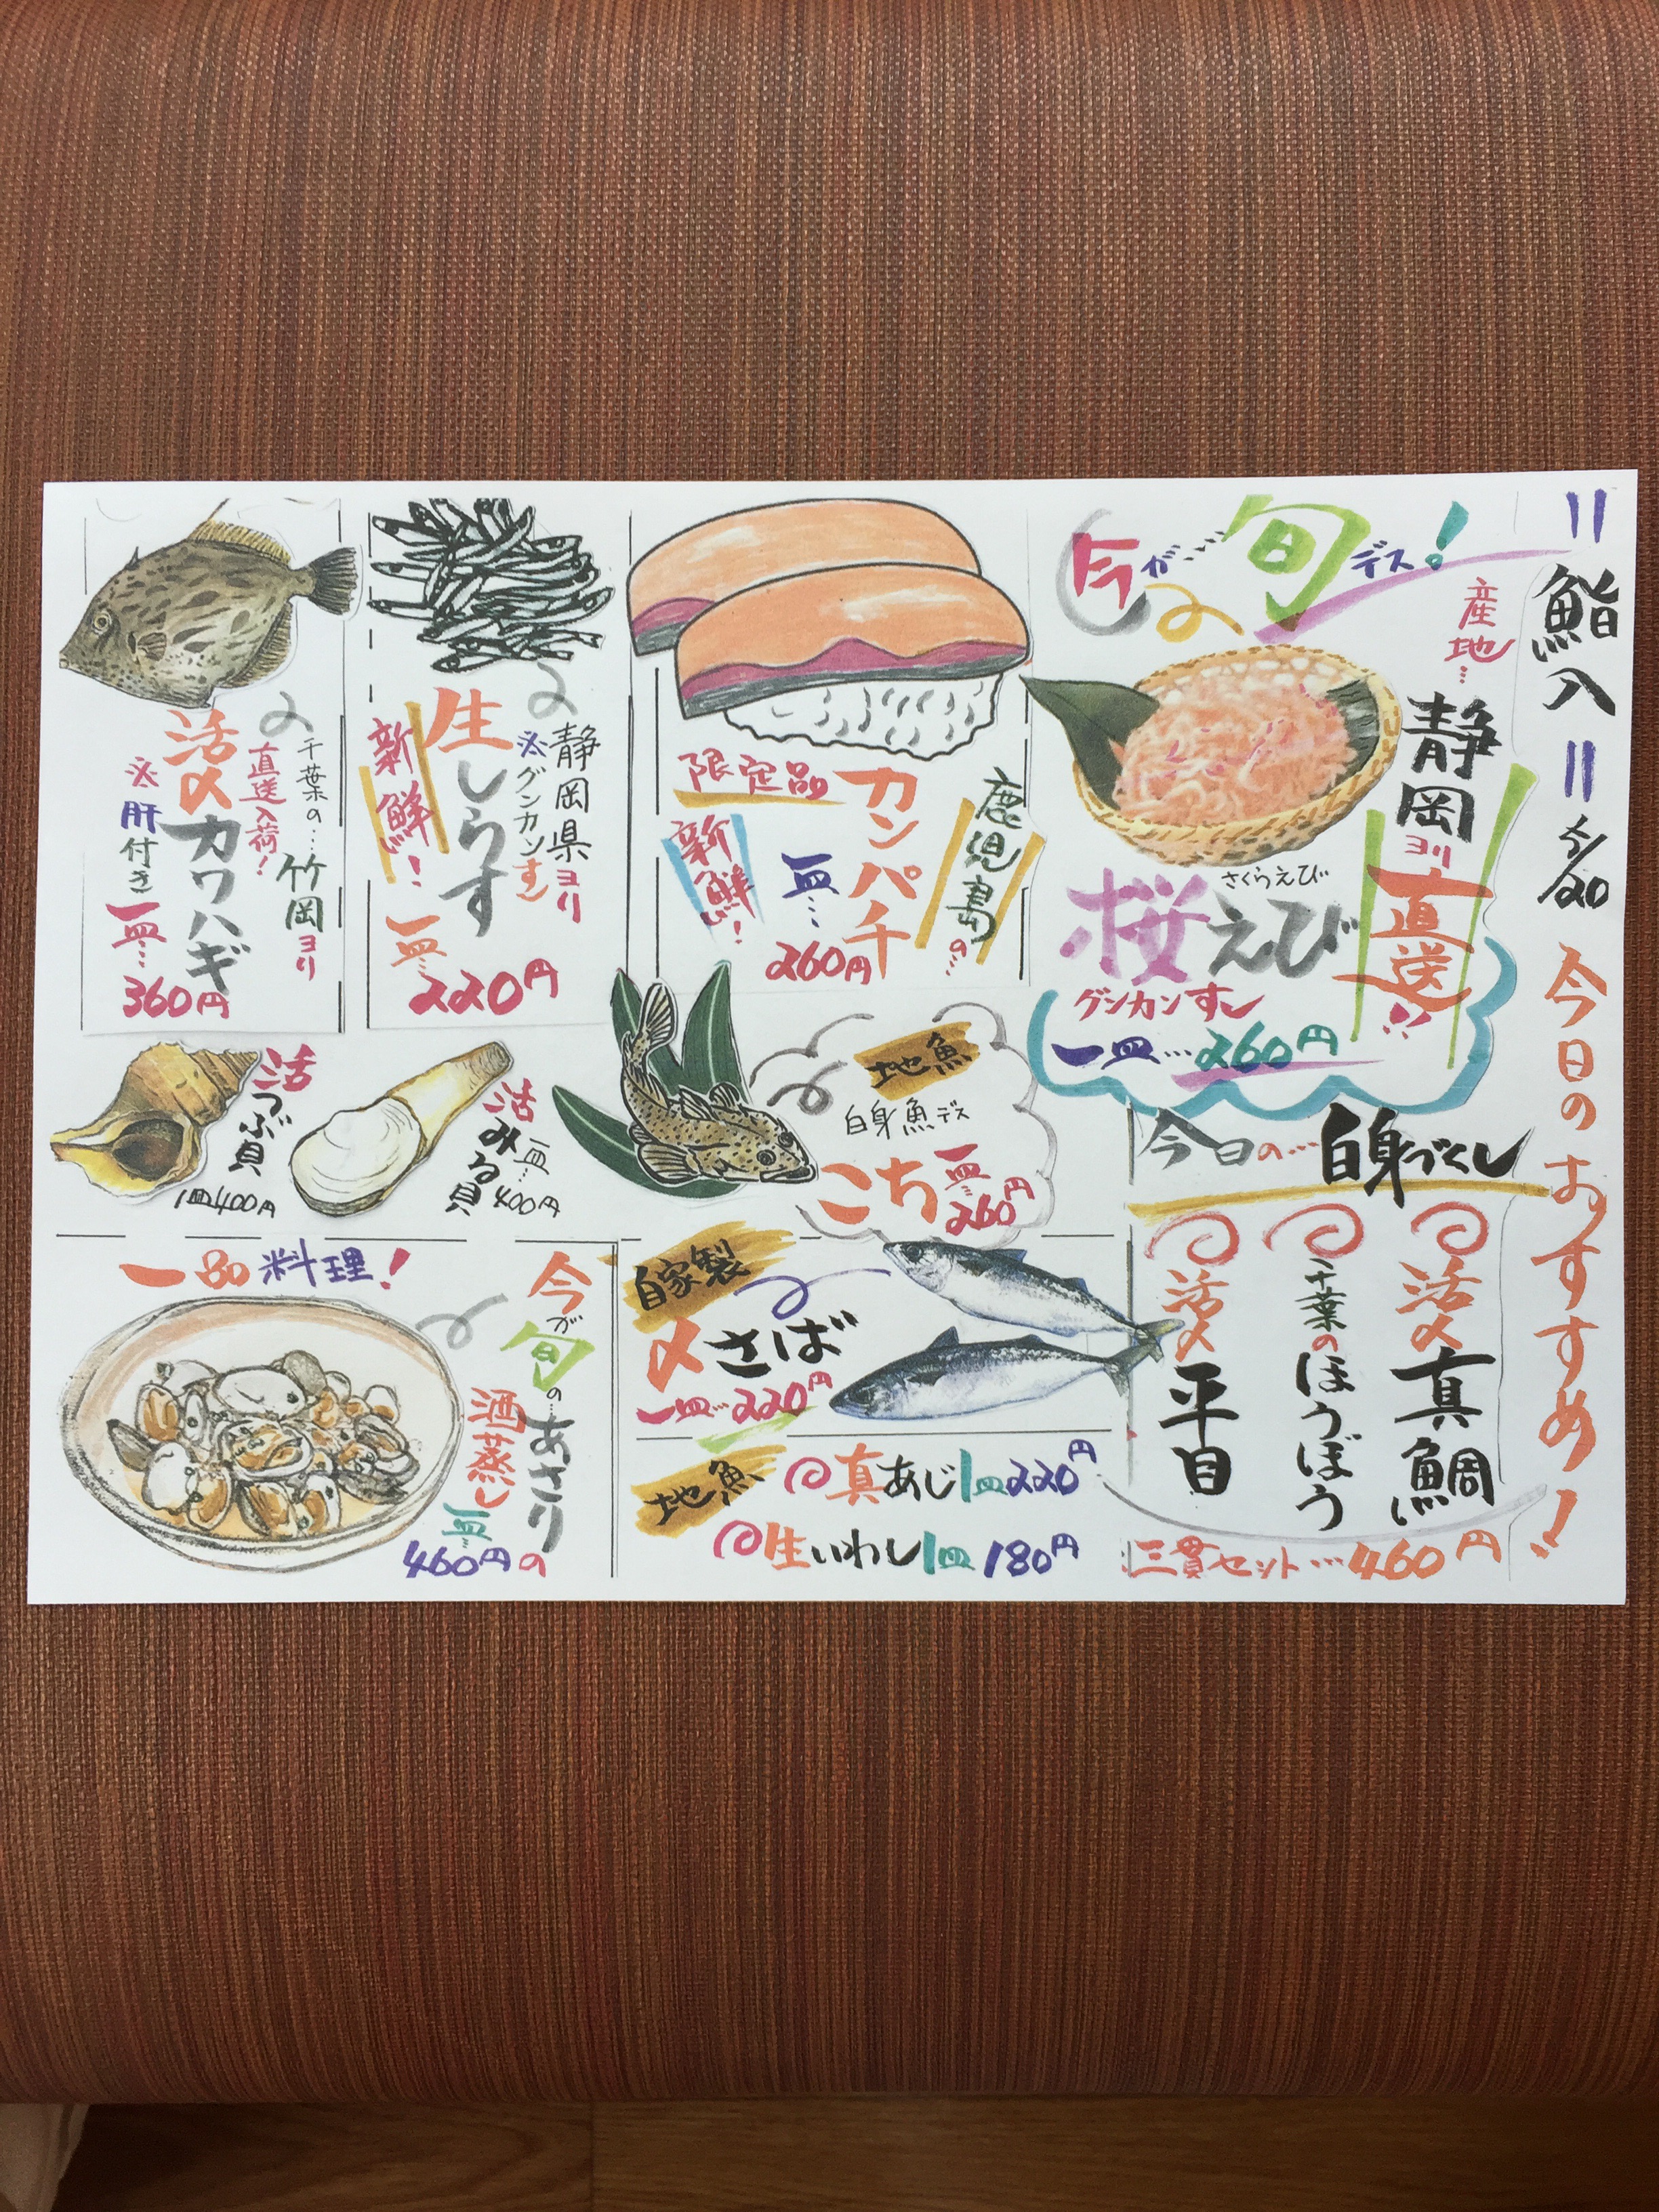 鮨入
5/20
今日のおすすめ!
今が…旬デス!
産地…
静岡ヨリ
直送!!
さくらえび
桜えび
グンカンすし
一皿…260円
今日の…白身づくし
活〆真鯛
千葉のほうぼう
活〆平目
三貫セット…460円
鹿児島の…
カンパチ
限定品
新鮮!
一皿…
260円
静岡県ヨリ
※グンカンすし
生しらす
新鮮!
一皿…
220円
千葉の…竹岡ヨリ
直送入荷!
活〆カワハギ
※肝付き
一皿…
360円
地魚
白身魚デス
こち
一皿…
260円
活みる貝
一皿…400円
活つぶ貝
1皿400円
自家製
〆さば
一皿…220円
地魚
真あじ1皿220円
生いわし1皿180円
一品料理!
今が旬の…あさり
酒蒸し
一皿…
460円